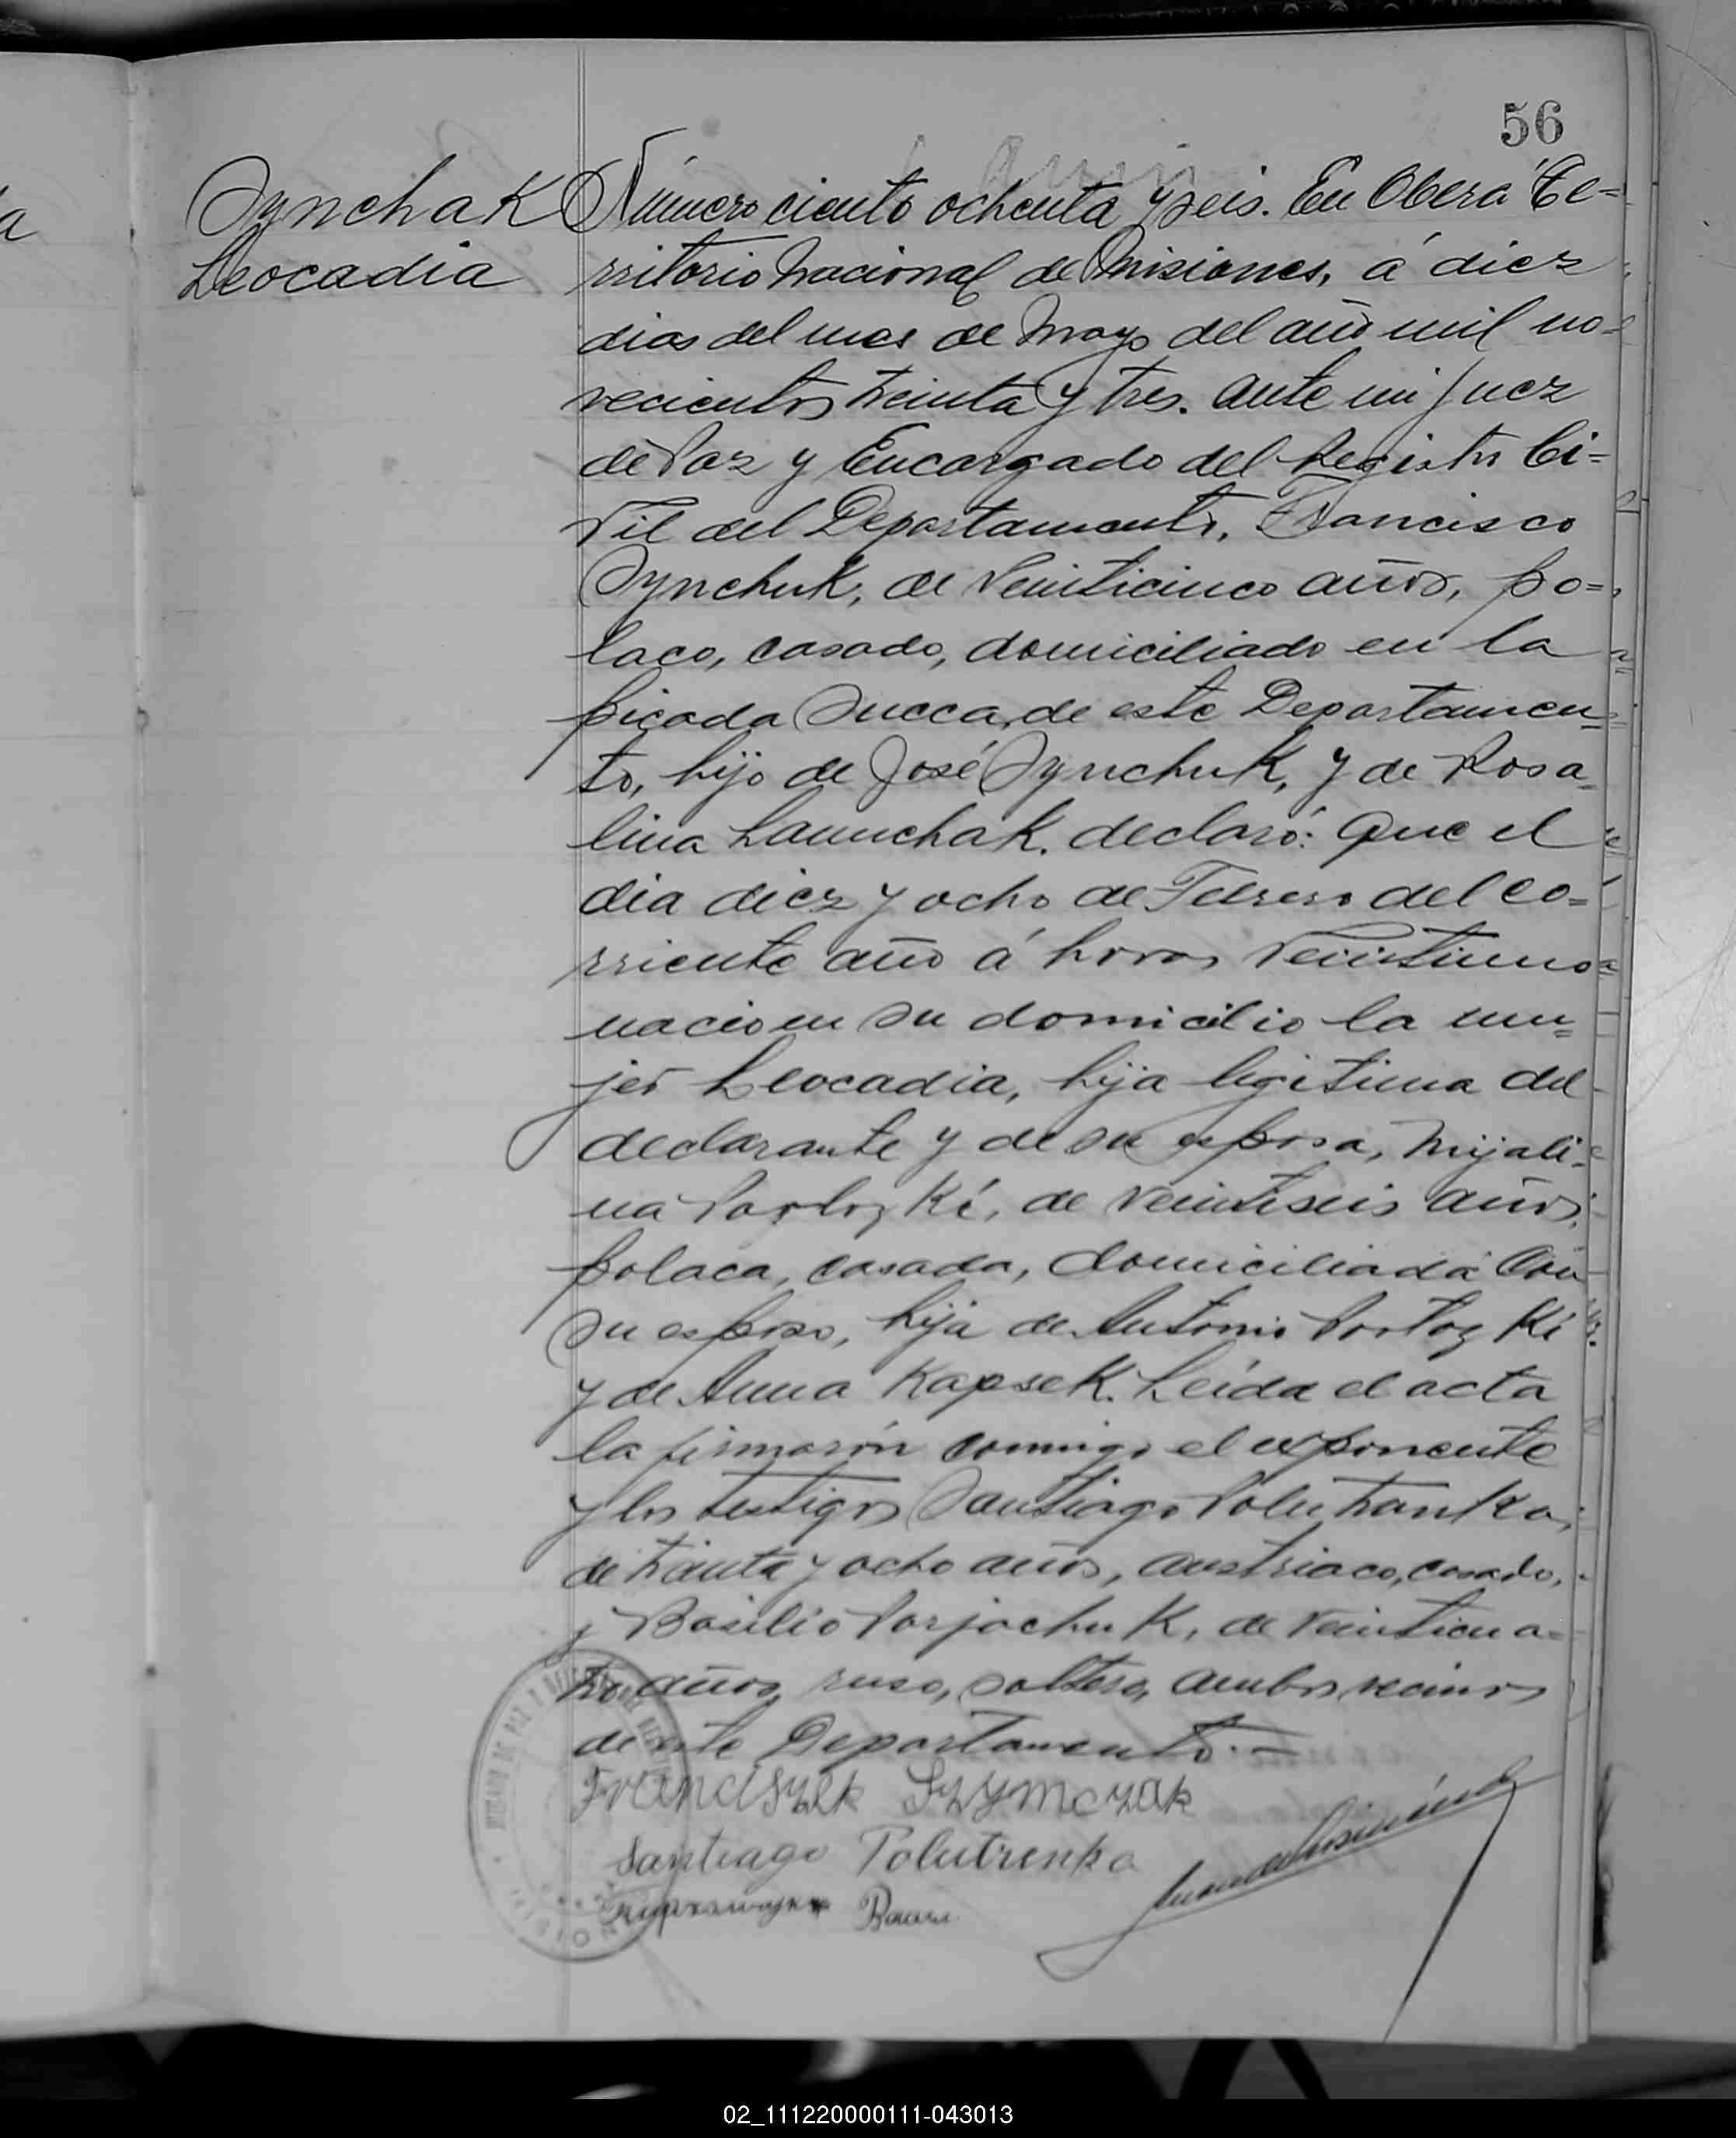 56
Synchak
Leocadia
Número ciento ochenta y seis. En Oberá Te=
rritorio Nacional de Misiones, á diez
dias del mes de Mayo del año mil no=
vecientos treinta y tres. Ante mi Juez
de Paz y Encargado del Registro Ci=
vil del Departamento, Francisco
Synchuk, de veinticinco años, po=
laco, casado, domiciliado en la
picada Sueca, de este Departamen=
to, hijo de José Synchuk, y de Rosa=
lina Launchak. declaró: Que el
dia diez y ocho de Febrero del co=
rriente año á horas veintiuno
nacio en su domicilio la mu=
jer Leocadia, hija legitima del
declarante y de su esposa, Mijali=
na, de veintiseis años,
polaca, casada, domiciliada con
su esposo, hija de Antonio
y de Anna Kapsek. Leida el acta
la firmarón conmigo el exponente
y los testigos Santiago Polutranka,
de treinta y ocho años, austriaco, casado,
y Basilio Parjachuk, de veinticua=
tro años, ruso, soltero, ambos vecinos
de este Departamento.—
Franciszek Szymczak
Santiago Polutrenko